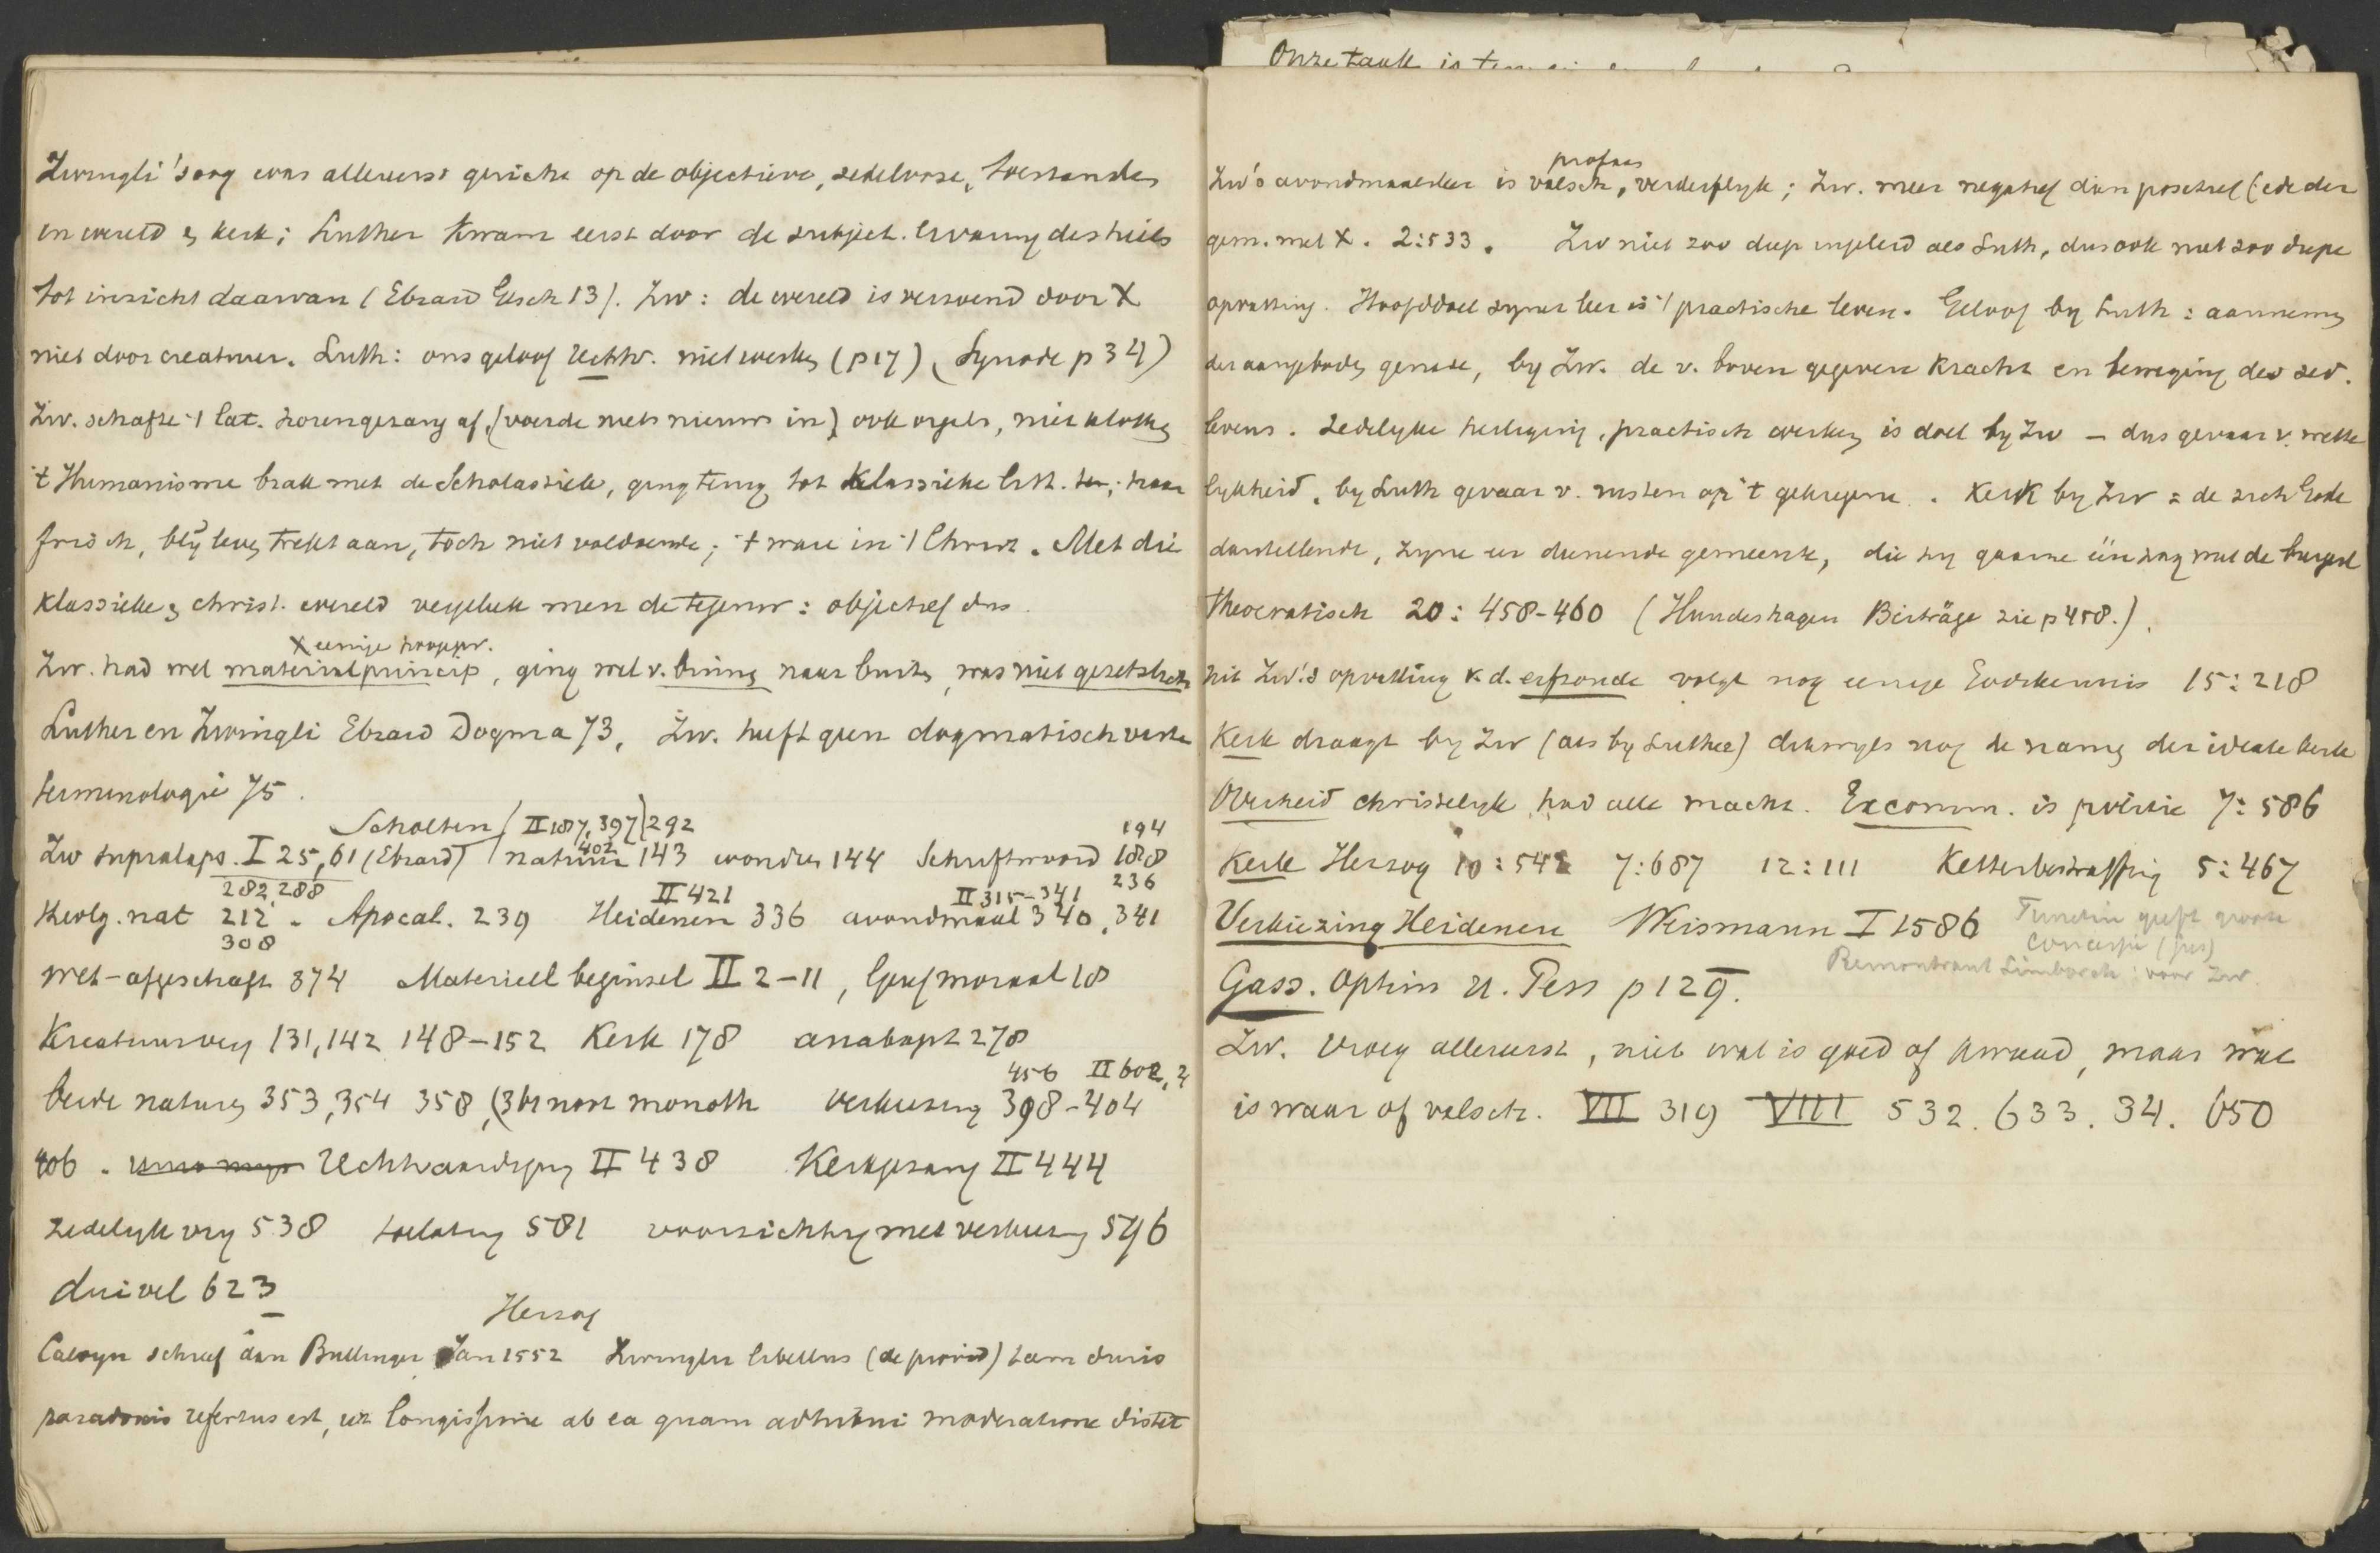 Zwingli's oog was allereerst gericht op de objectieve, zedelooze, toestanden
in wereld en kerk; Luther kwam eerst door de subject. ervaring des heils
tot inzicht daarvan (Ebrard Gesch 13). Zw: de wereld is verzoend door X
niet door creatuur. Luth: ons geloof rechtv. niet werken (p 17) (Synode p 34)
Zw. schafte 't lat. korengezang af, (voerde niets nieuws in) ook orgels, niet klokken
't Humanisme brak met de Scholastiek, ging terug tot klassieke litt. daar
frisch, blij leven trekt aan, toch niet voldoende; 't ware in 't Christ. Met die
klassieke en christ. wereld vergeleek men de tegenw: objectief dus.
X eenige hoogepr.
Zw. had wel materialprincip, ging wel v. binnen naar buiten, was niet gesetzlich
Luther en Zwingli Ebrard Dogma 73, Zw. heeft geen dogmatisch vaste
terminologie 75.
Scholten (II 187, 397) 292
402 194
Zw supralaps. I 25, 61 (Ebrard) natuur 143 wonder 144 Schriftwoord 188
282, 288 II 421 II 315-341 236
theolg. nat 212. Apocal. 239 Heidenen 336 avondmaal 340, 341
308
wet-afgeschaft 374 Materieel beginsel II 2-11, Geref moraal 18
Kreatuurverg 131, 142 148-152 Kerk 178 anabapt 278
456 II 602, 2
beide naturen 353, 354 358, (3 br non monoth Verkiezing 398-404
406. Rechtvaardiging II 438 Kerkgezang II 444
zedelyk vry 538 toelating 581 voorzichtig met verkiezing 596
duivel 623
Herzog
Calvyn schreef aan Bullinger Jan 1552 Zwinglii libellus (de provid) tam duris
paradoxis refertus est, ut longissime ab ea quam adhibui moderatione distet
Onze taak is
profaas
Zw's avondmaalsleer is valsch, verderflyk; Zw. meer negatief dan positief (eede der
gem. met X. 2:533. Zw niet zoo diep ingeleid als Luth, dus ook niet zoo diepe
opvatting. Hoofddoel zyner leer is 't practische leven. Geloof by Luth: aanneming
der aangeboden genade, by Zw. de v. boven gegeven kracht en beweging des zed.
levens. Zedelyke heiliging, practisch werken is doel by Zw - dus gevaar v. wette
lykheid, by Luth gevaar v. rusten op 't gekregene. Kerk by Zw = de zich Gode
darstellende, zyne eer dienende gemeente, die hy gaarne één zag met de burgerl
theocratisch 20: 458-460 (Hundeshagen Beiträge zie p 458.).
uit Zw's opvatting v. d. erfzonde volgt nog eenige Godskennis 15:218
Kerk draagt by Zw (als by Luther) dikwyls nog de namen der ideale kerk
Overheid christelyk had alle macht. Excomm. is politie 7:586
Kerk Herzog 10:542 7:687 12:111 Ketterbestraffing 5:467
Verkiezing Heidenen Weismann I 1586 Turretin geeft groote
concessie (jus)
Remonbrant Limborch: voor Zw.
Gass. Optim u. Pess p 129.
Zw. vroeg allereerst, niet wat is goed of kwaad, maar wat
is waar of valsch. VII 319 VIII 532. 633. 34. 650